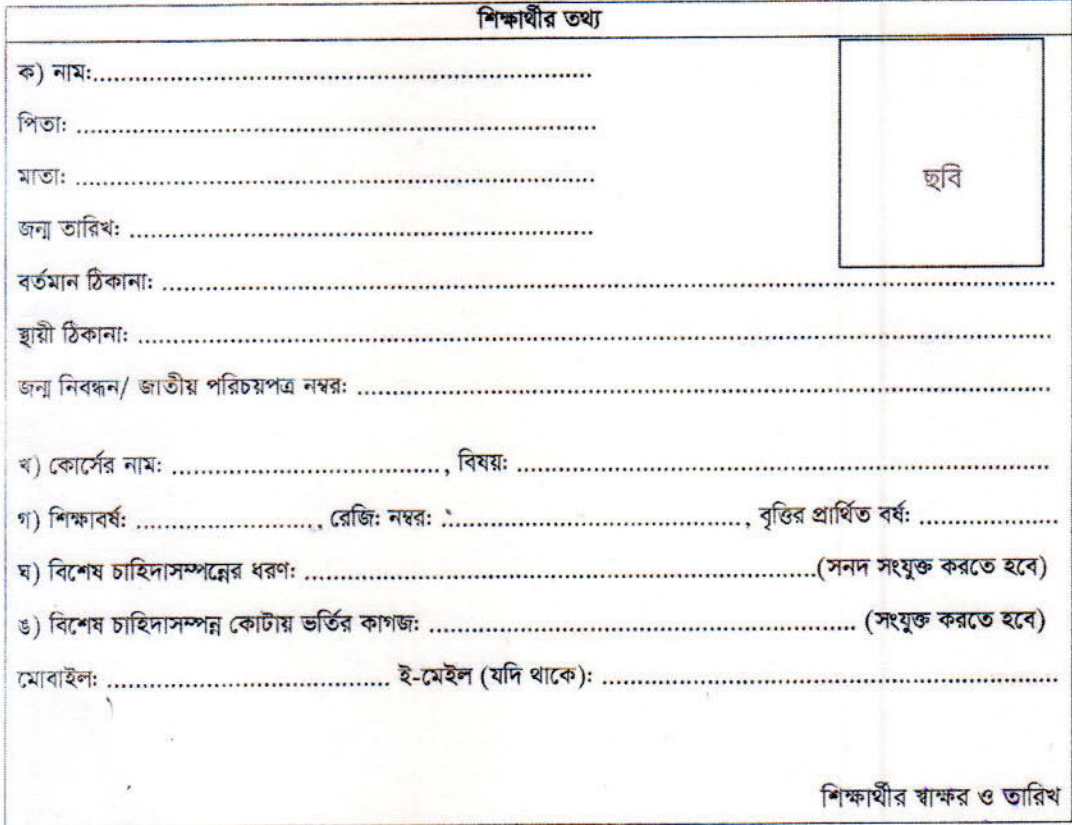 শিক্ষার্থীর তথ্য
ক) নাম:......................................................................
পিতা: .........................................................................
মাতা: .........................................................................
ছবি
জন্ম তারিখ: ................................................................
বর্তমান ঠিকানা: .............................................................................................................................
স্থায়ী ঠিকানা: ................................................................................................................................
জন্ম নিবন্ধন/ জাতীয় পরিচয়পত্র নম্বর: .................................................................................................
খ) কোর্সের নাম: ......................................, বিষয়: ...........................................................................
গ) শিক্ষাবর্ষ: .........................., রেজি: নম্বর: ..........................................., বৃত্তির প্রার্থিত বর্ষ: ....................
ঘ) বিশেষ চাহিদাসম্পন্নের ধরণ: ........................................................................(সনদ সংযুক্ত করতে হবে)
ঙ) বিশেষ চাহিদাসম্পন্ন কোটায় ভর্তির কাগজ: ............................................................ (সংযুক্ত করতে হবে)
মোবাইল: ........................................ ই-মেইল (যদি থাকে): ................................................................
শিক্ষার্থীর স্বাক্ষর ও তারিখ